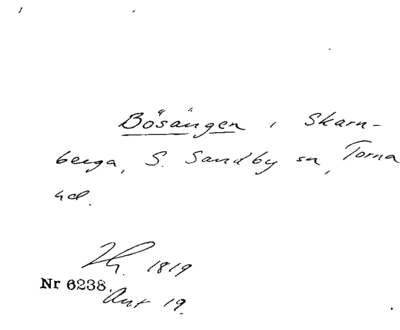 Bösängen i Skarn-
berga, S. Sandby sn, Torna
hd.
1819
Nr 6238.
Akt 19.